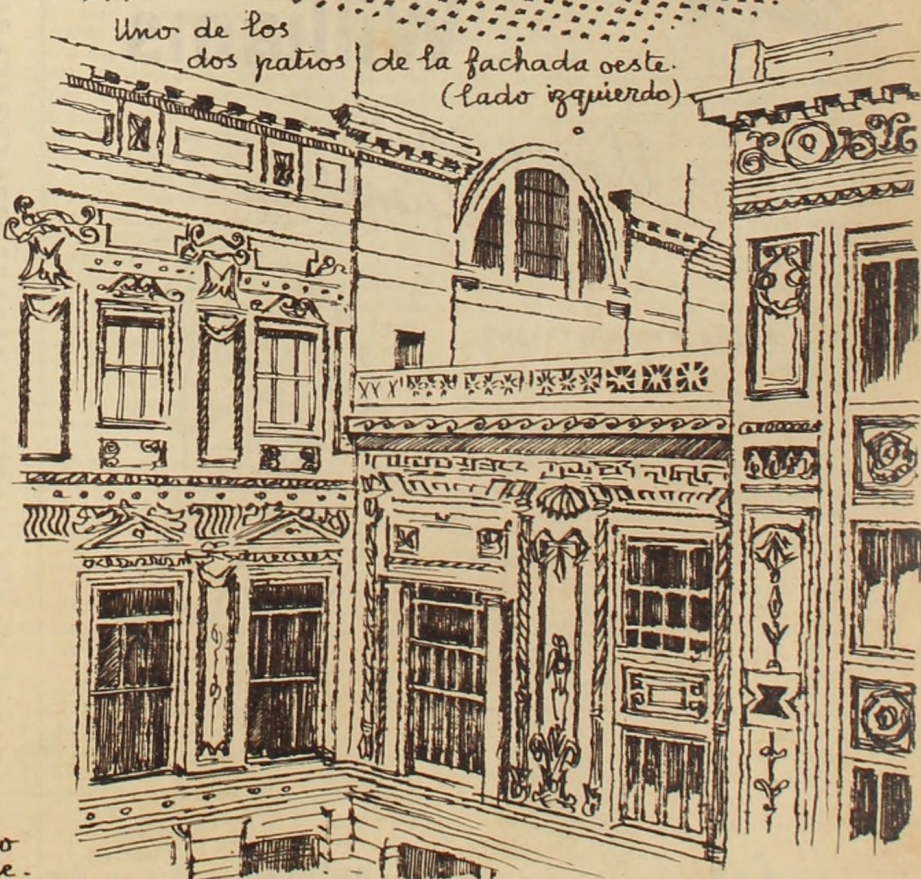 Uno de los
dos patios de la fachada oeste.
(lado izquierdo)